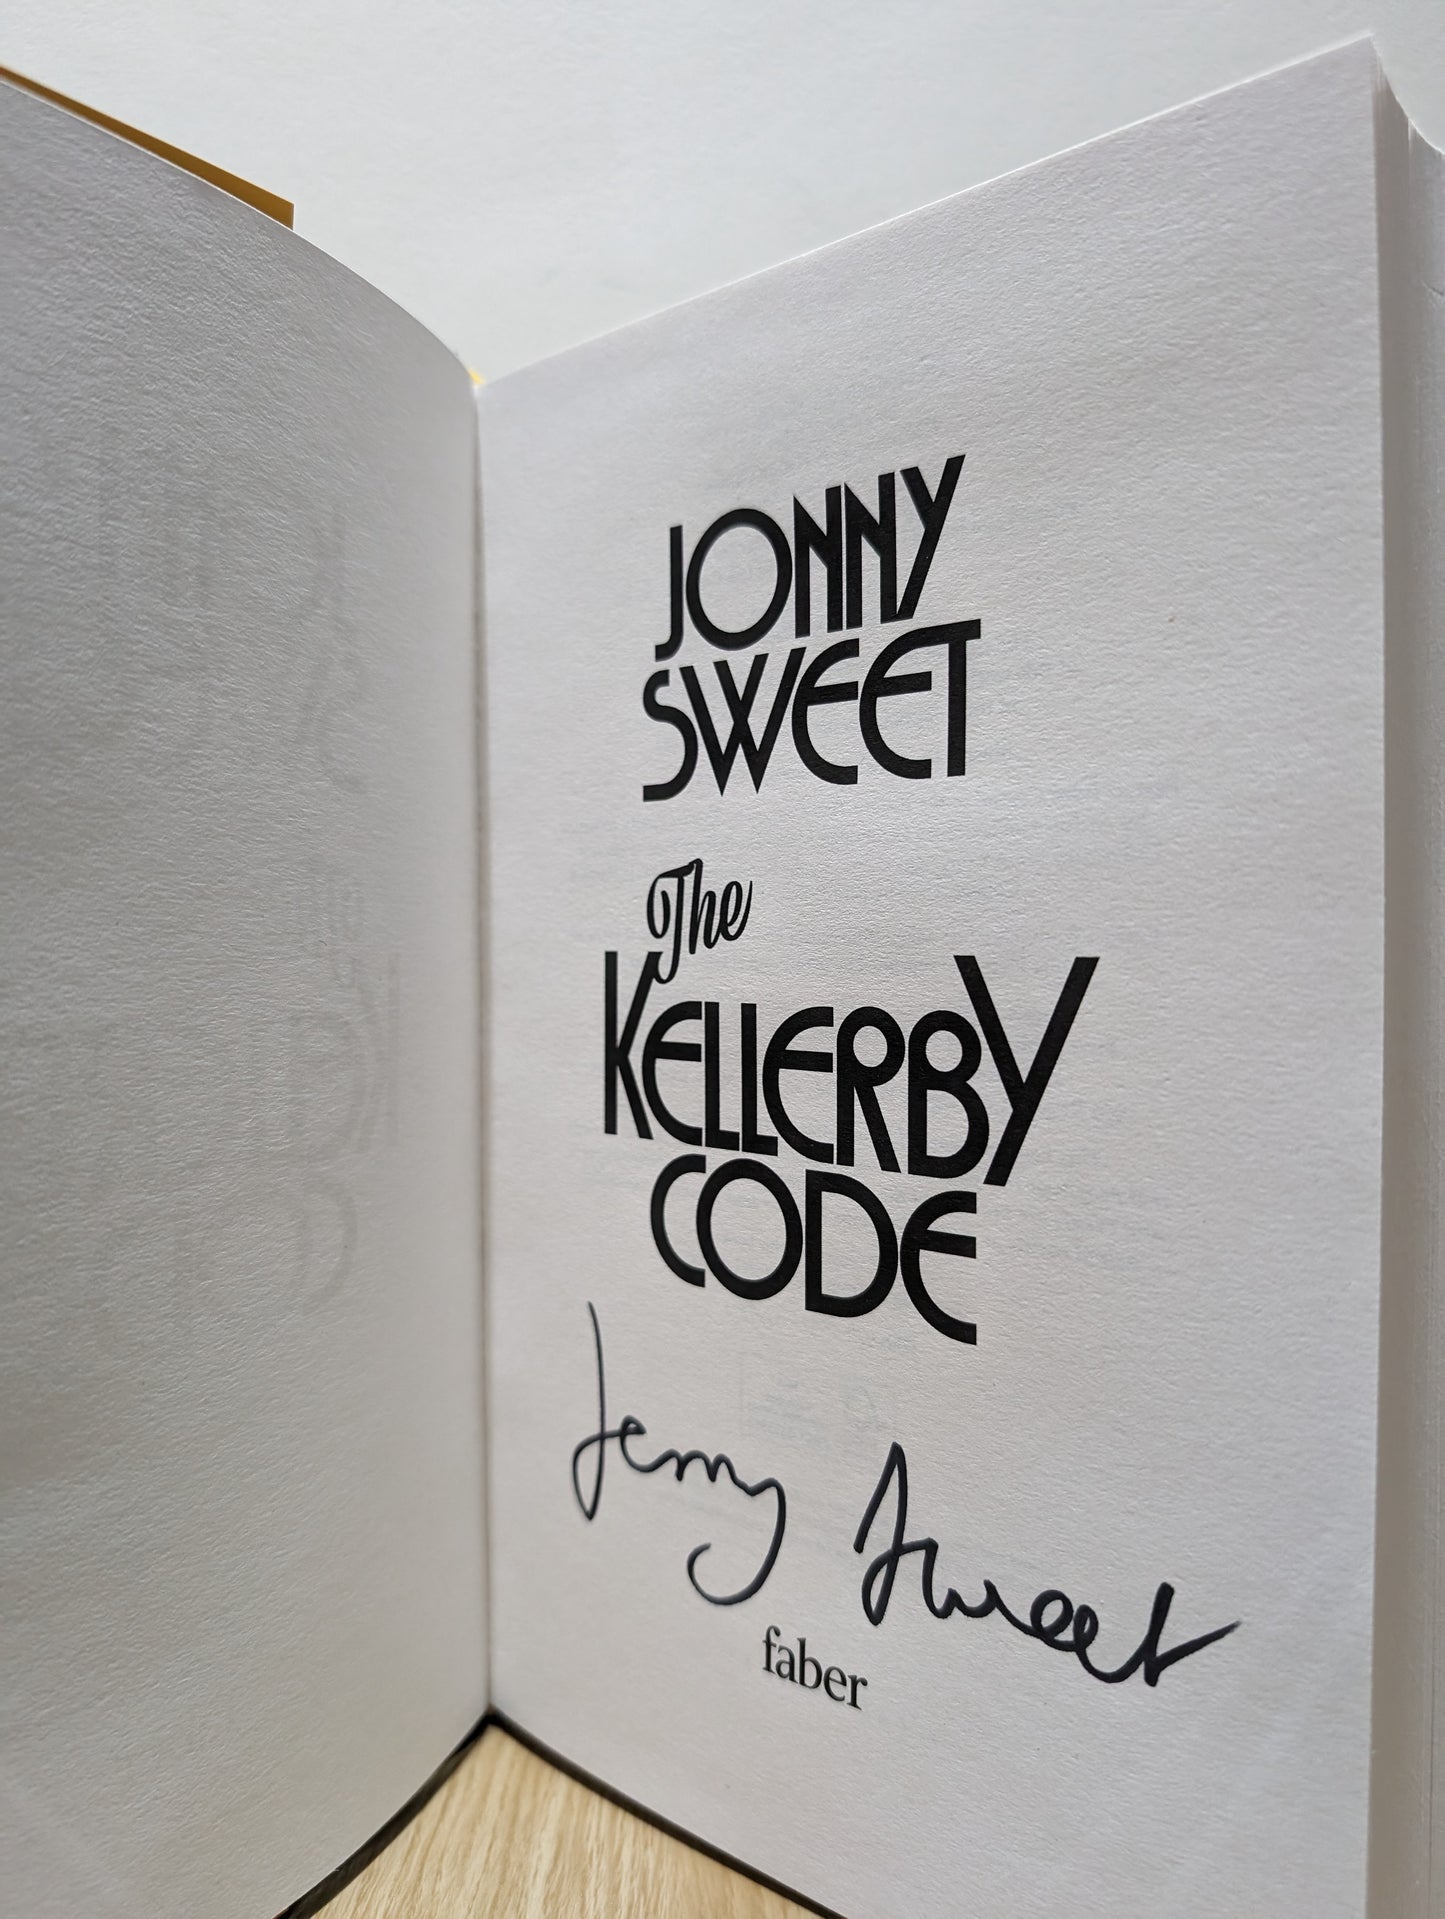 JONNY
SWEET
The
KELLERBY
CODE
Jonny Sweet
faber